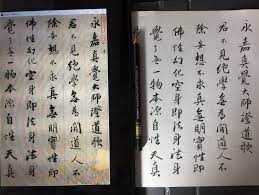 永嘉真覺大師證道歌
君不見絕學無為閒道人不
除妄想不求真無明實性即
佛性幻化空身即法身法身
覺了無一物本源自性天真
永嘉真覺大師證道歌
君不見絕學無為閒道人不
除妄想不求真無明實性即
佛性幻化空身即法身法身
覺了無一物本源自性天真